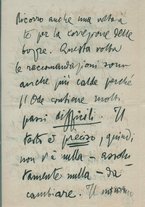 Ricorro anche una volta a
te per la correzione delle
bozze. Questa volta
le raccomandazioni sono
anche più calde perché
l'Ode contiene molti
passi difficili. Il
testo è preciso, quindi
non v'è nulla – assolu-
tamente nulla – da
cambiare. Il